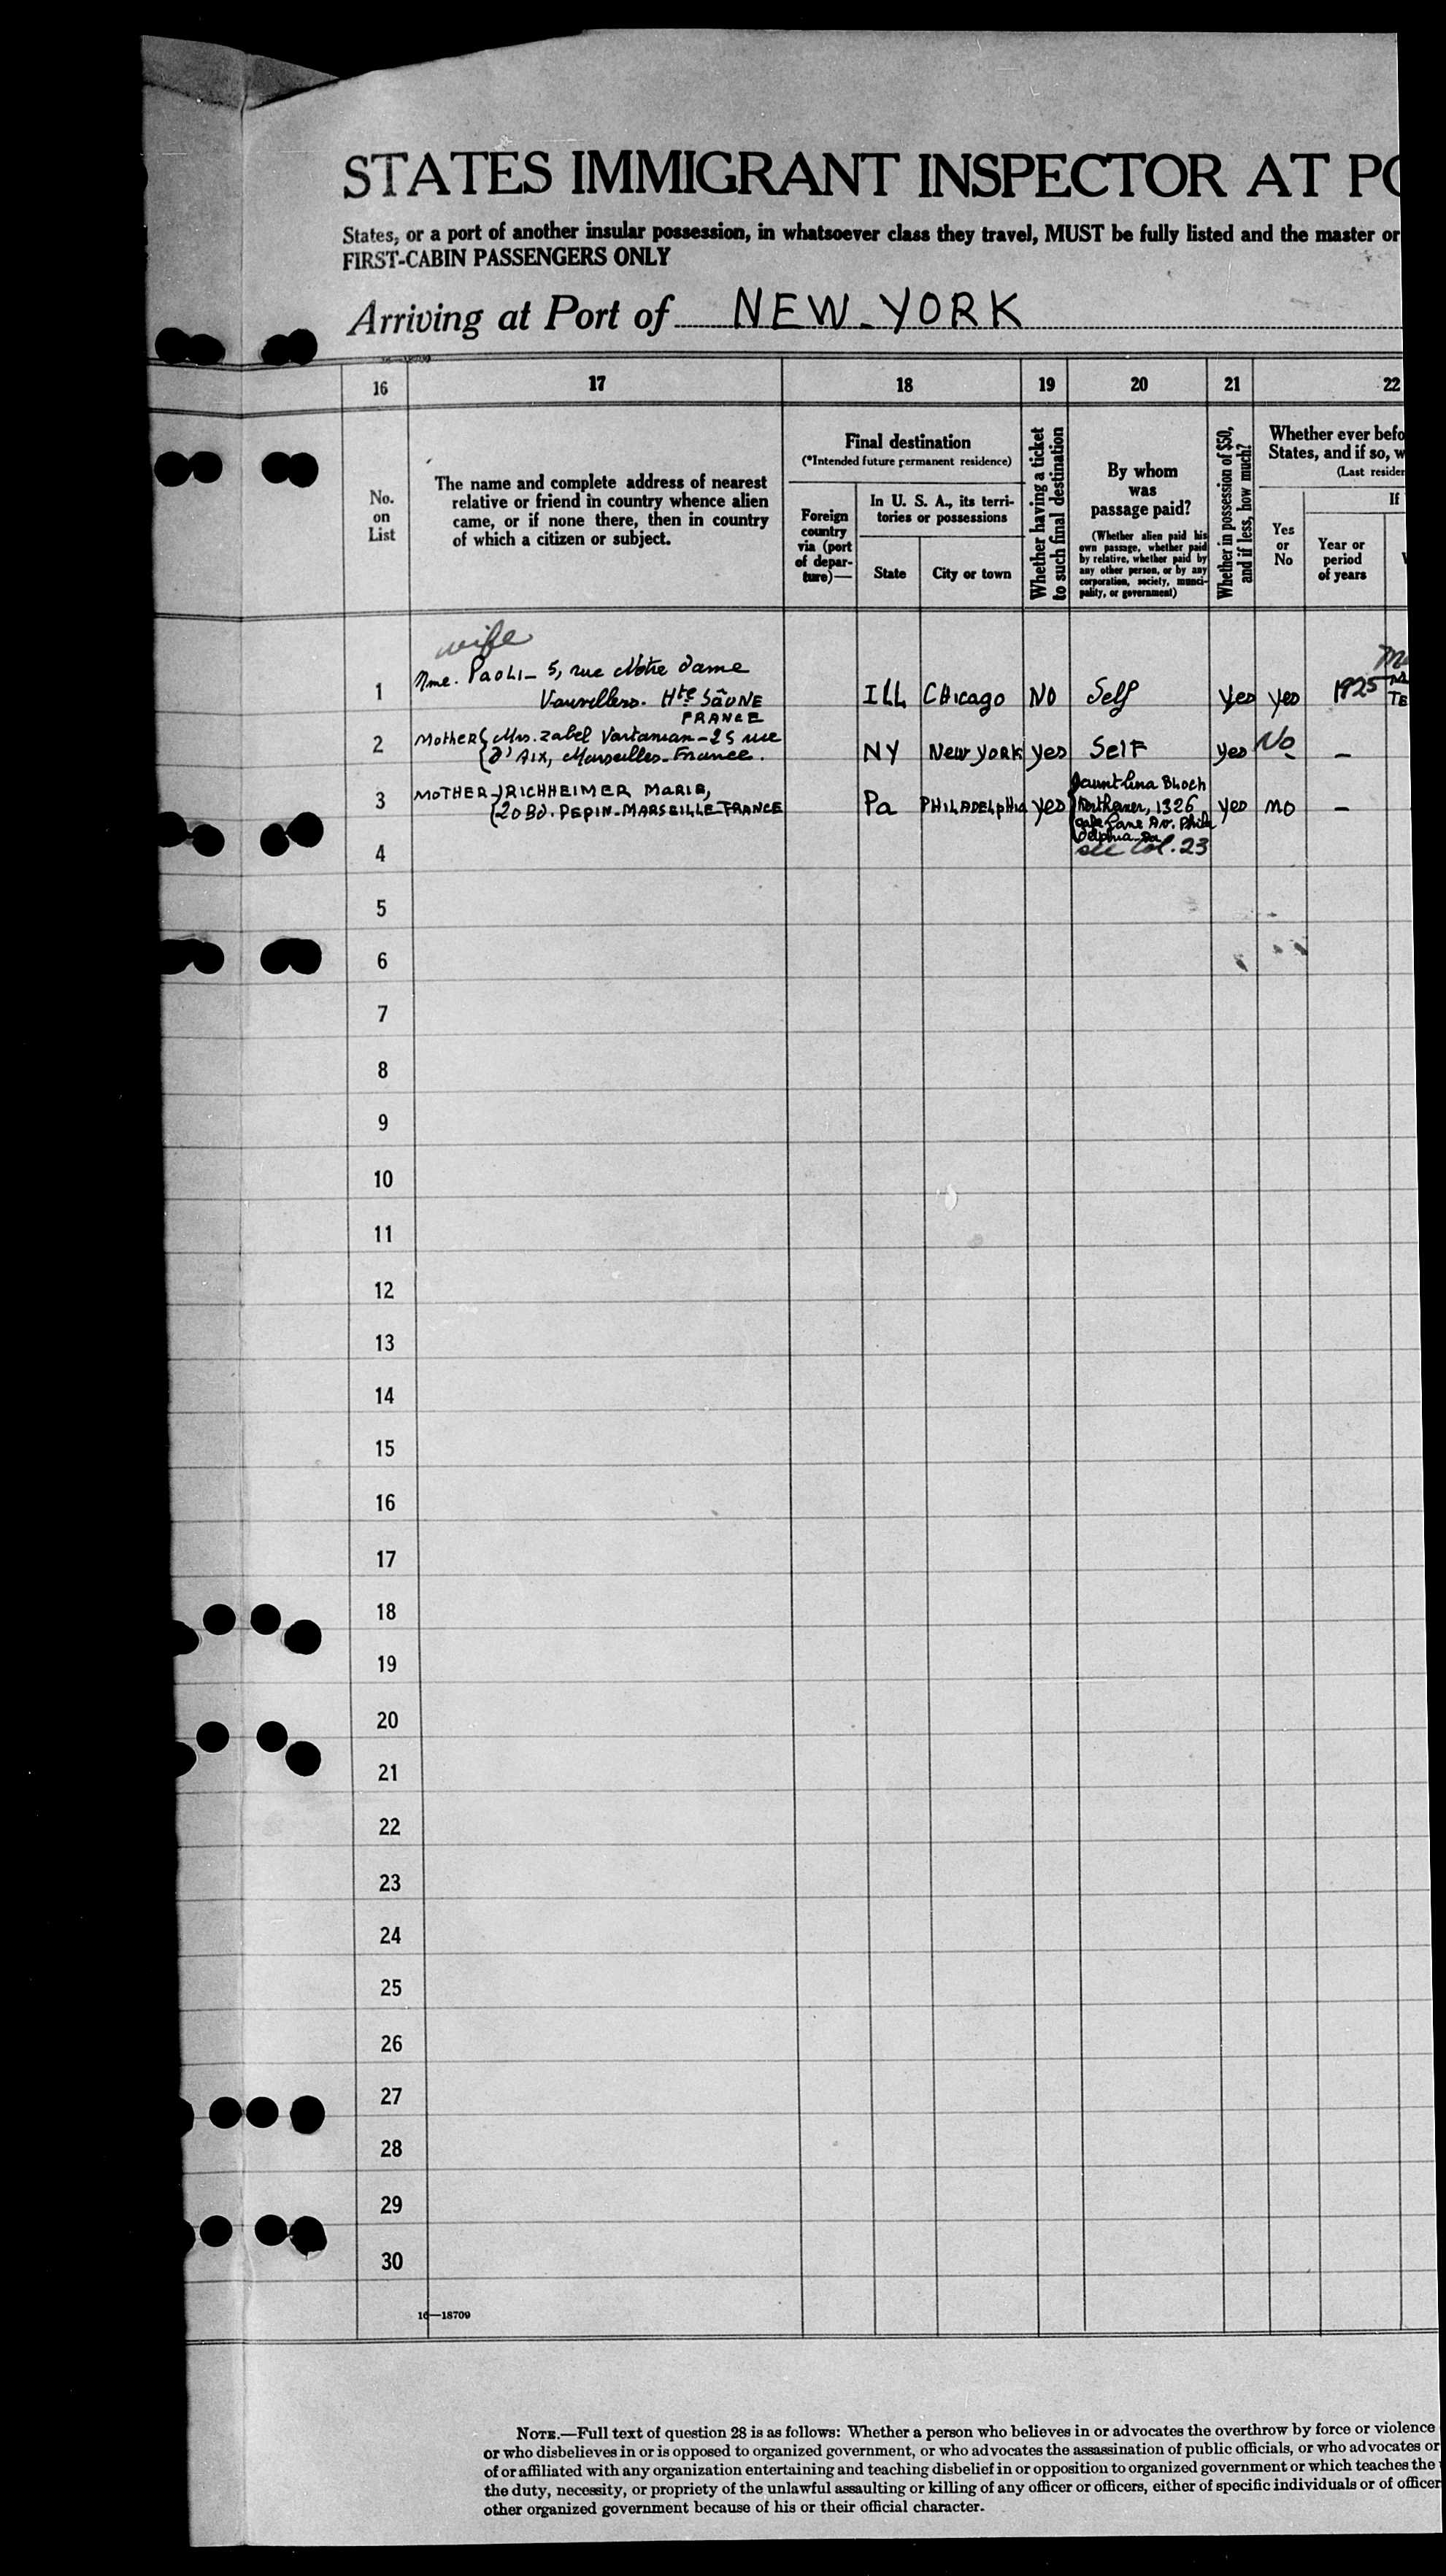 STATES IMMIGRANT INSPECTOR AT PO
States, or a port of another insular possession, in whatsoever class they travel, MUST be fully listed and the master or
FIRST-CABIN PASSENGERS ONLY
Arriving at Port of NEW-YORK
16 17 18 19 20 21 22
No.
on
List
The name and complete address of nearest
relative or friend in country whence alien
came, or if none there, then in country
of which a citizen or subject.
Final destination
(*Intended future permanent residence)
Foreign
country
via (port
of depar-
ture)—
In U. S. A., its terri-
tories or possessions
State
City or town
Whether having a ticket
to such final destination
By whom
was
passage paid?
(Whether alien paid his
own passage, whether paid
by relative, whether paid by
any other person, or by any
corporation, society, munici-
pality, or government)
Whether in possession of $50,
and if less, how much?
Whether ever befo
States, and if so, w
(Last resider
Yes
or
No
If
Year or
period
of years
wife
1 Mme. PAOLI - 5, rue Notre Dame
Vauvillers. Hte SAÔNE
FRANCE
ILL Chicago NO Self Yes yes 1925
2 Mother { Mrs. Zabel Vartanian - 25 rue
d'Aix, Marseilles-France.
NY New York yes Self yes No –
3 MOTHER RICHHEIMER MARIA,
20 BD. PEPIN-MARSEILLE-FRANCE
Pa PHILADELPHIA yes
aunt Lina Bloch
1326
Lane Av. Phila
delphia-Pa
see Col. 23
yes no –
4
5
6
7
8
9
10
11
12
13
14
15
16
17
18
19
20
21
22
23
24
25
26
27
28
29
30
16—18709
NOTE.—Full text of question 28 is as follows: Whether a person who believes in or advocates the overthrow by force or violence
or who disbelieves in or is opposed to organized government, or who advocates the assassination of public officials, or who advocates or
of or affiliated with any organization entertaining and teaching disbelief in or opposition to organized government or which teaches the
the duty, necessity, or propriety of the unlawful assaulting or killing of any officer or officers, either of specific individuals or of officer
other organized government because of his or their official character.